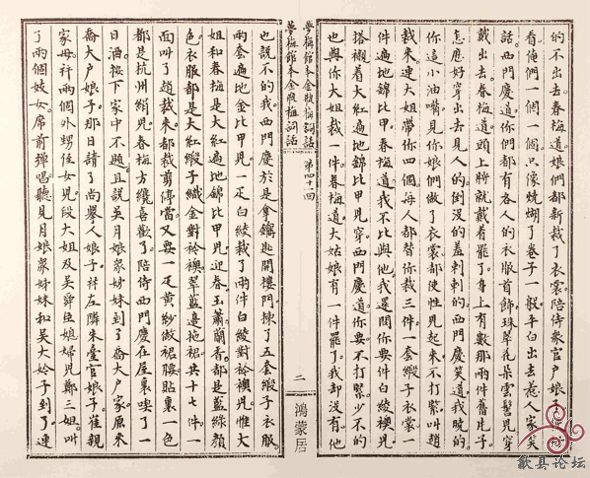 的不出去。春梅道娘們都新裁了衣裳。陪侍衆官户娘子便好
看俺們一個一個只像燒煳了卷子一般平白出去惹人家笑
話。西門慶道你們都有各人的衣服首飾。珠翠花朵雲髻兒穿
戴出去。春梅道頭上將就戴着罷了。身上有數那兩件舊片子
怎應好穿出去見人的倒没的羞剌剌的。西門慶笑道我曉的
你這小油嘴見你娘們做了衣裳都使性兒起來不打緊叫趙
裁來連大姐帶你四個每人都替你裁三件一套緞子衣裳一
件遍地錦比甲。春梅道我不比與他我還問你要件白綾襖兒
搭襯着大紅遍地錦比甲兒穿。西門慶道你要不打緊少不的
也與你大姐裁一件。春梅道大姑娘有一件罷了我却没有他
夢梅館本金瓶梅詞話
夢梅館本金瓶梅詞話 第四十一回 二 鴻蒙居
也說不的我。西門慶於是拿鑰匙開樓門。揀了五套緞子衣服。
兩套遍地金比甲兒一疋白綾裁了兩件白綾對衿襖兒惟大
姐和春梅是大紅遍地錦比甲兒迎春玉簫蘭香都是藍綠顔
色衣服都是大紅緞子織金對衿襖翠藍邊拖裙共十七件一
面叫了趙裁來都裁剪停當又要一疋黄紗做裙腰貼裏一色
都是杭州絹兒春梅方纔喜歡了陪侍西門慶在屋裏喫了一
日酒按下家中不題且說吴月娘衆姊妹到了喬大户家原來
喬大户娘子那日請了尚舉人娘子。并左隣朱臺官娘子。崔親
家母。并兩個外甥侄女兒段大姐及吴舜臣媳婦兒鄭三姐叫
了兩個妓女。席前彈唱聽見月娘衆姊妹和吴大妗子到了連
歙县论坛